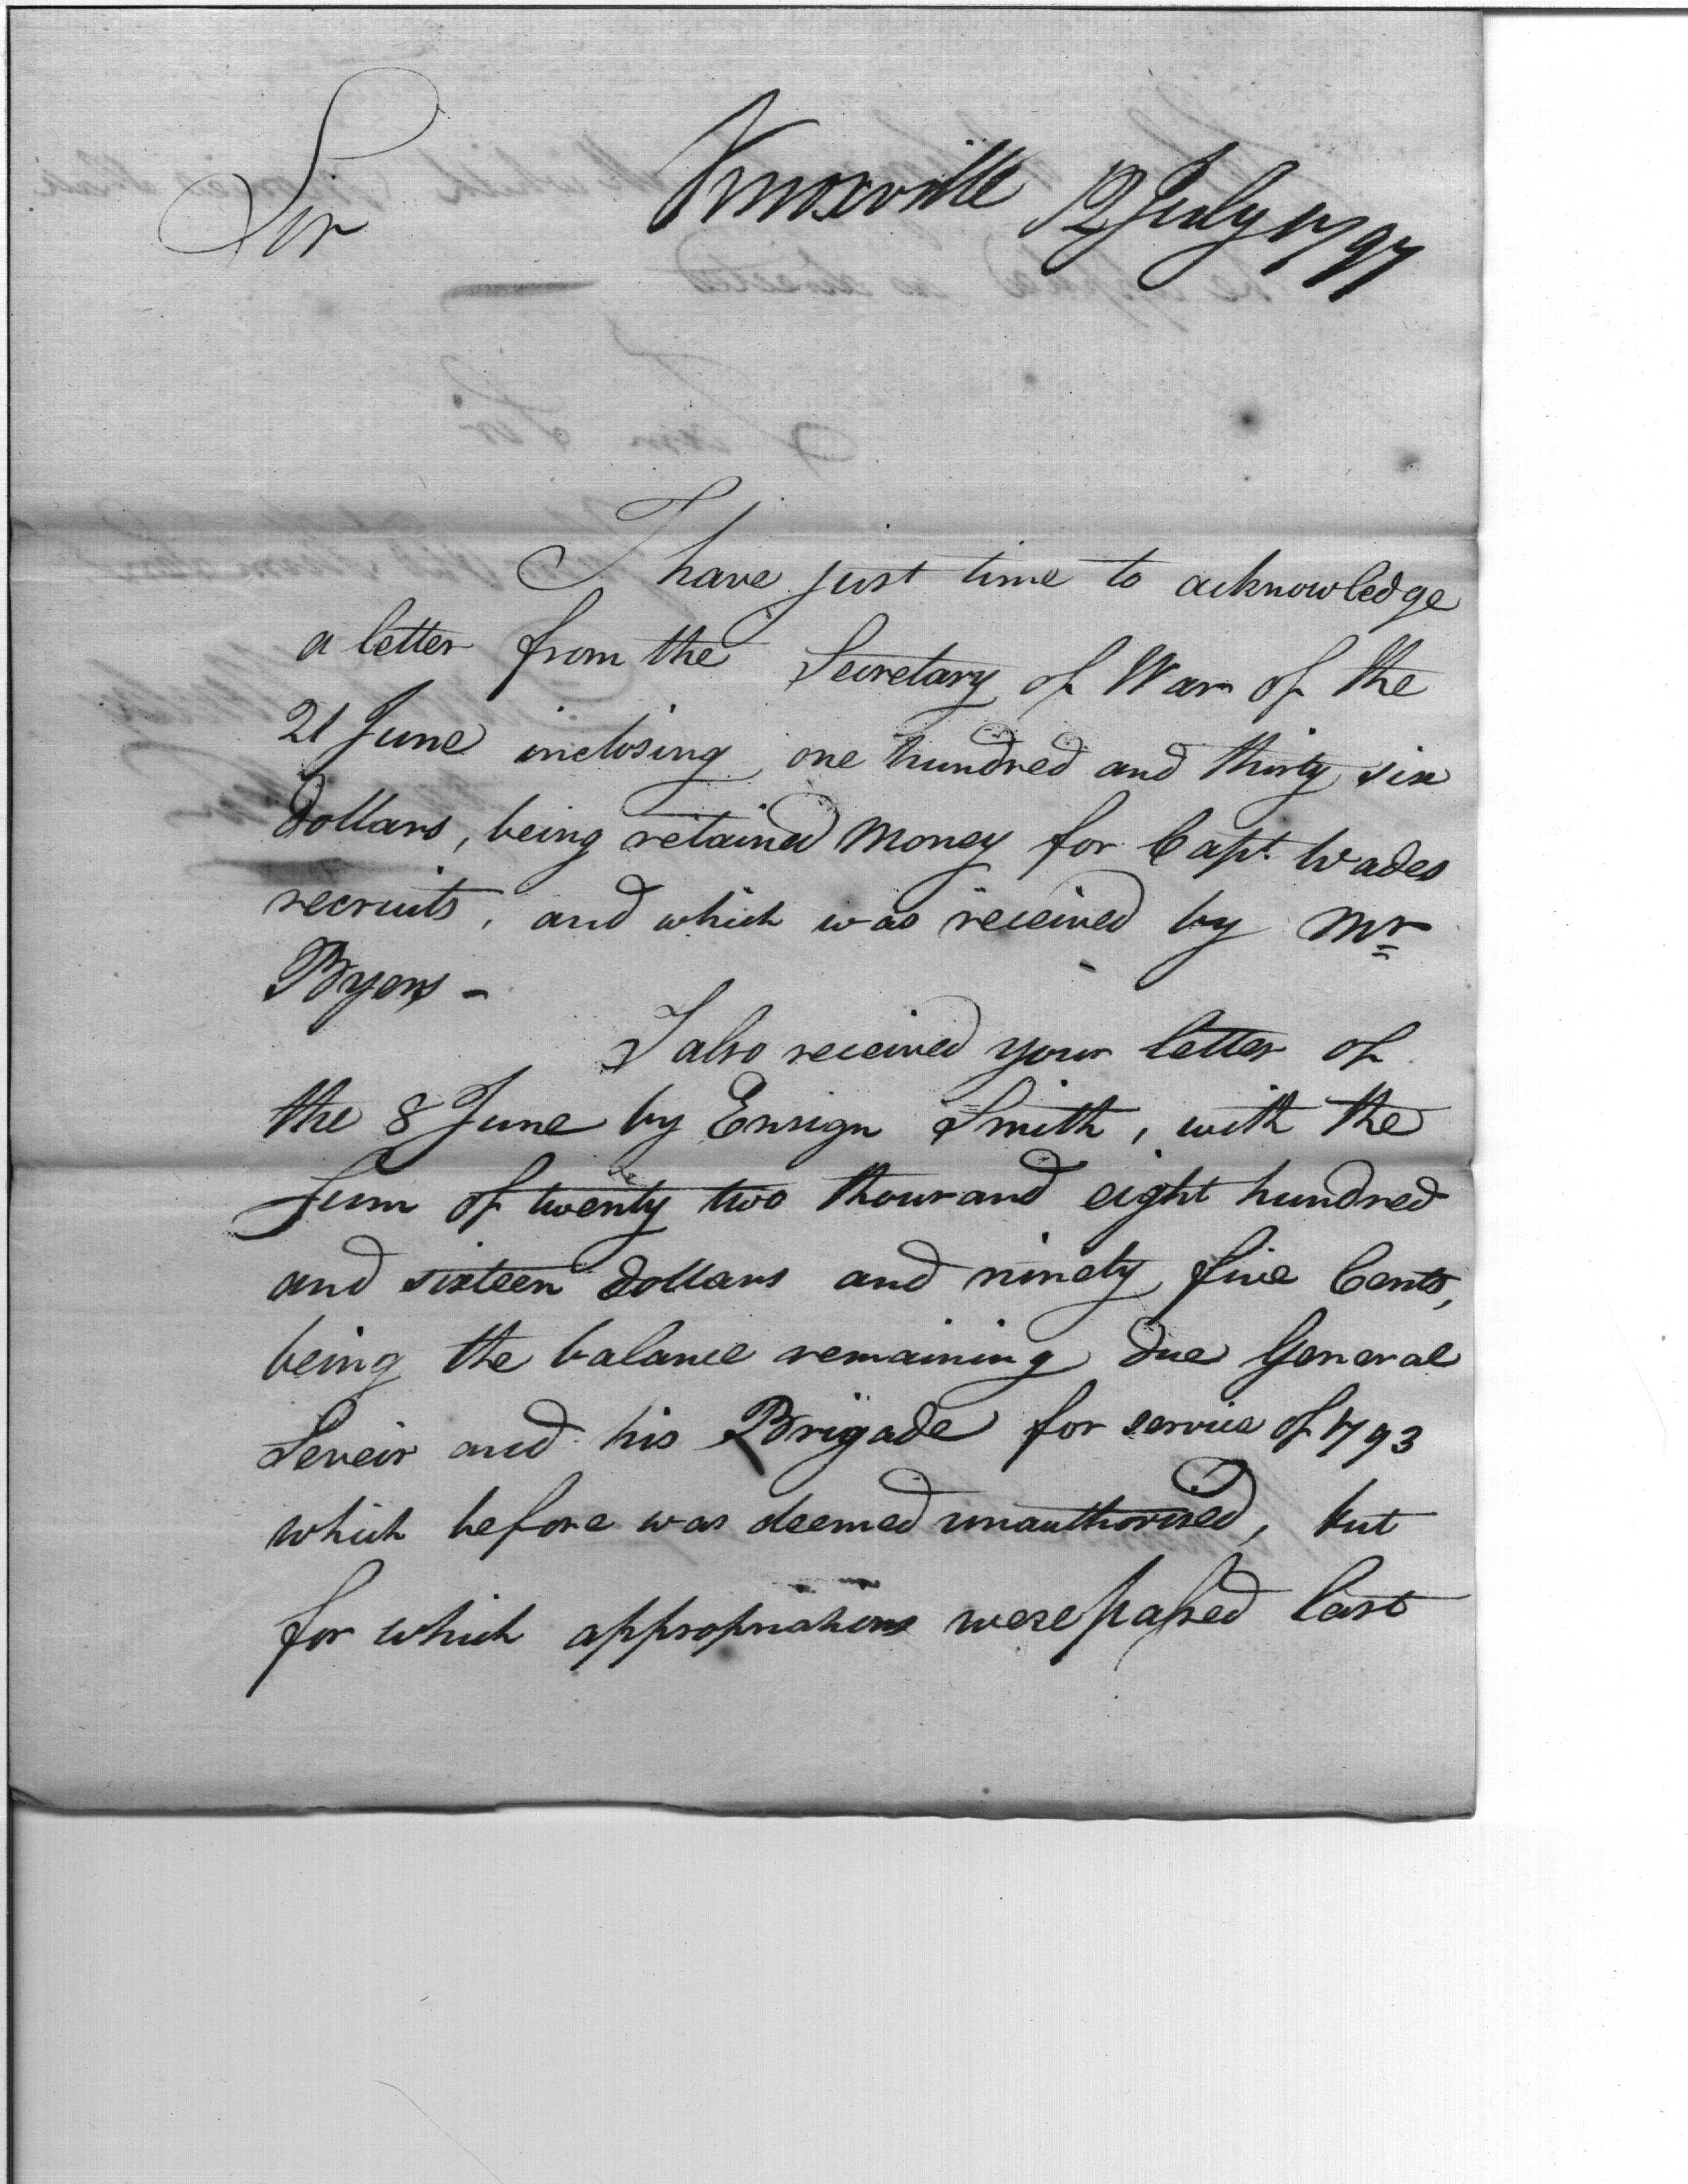 Knoxville 12 July 1797
Sir
I have just time to acknowledge
a letter from the Secretary of War of the
21 June inclosing one hundred and thirty six
dollars, being retained money for Capt. Wades
recruits, and which was received by Mr
Byers -
I also received your letter of
the 8 June by Ensign Smith, with the
sum of twenty two thousand eight hundred
and sixteen dollars and ninety five Cents,
being the balance remaining due General
Seveir and his Brigade for service of 1793
which before was deemed unauthorised, but
for which appropriations were passed last